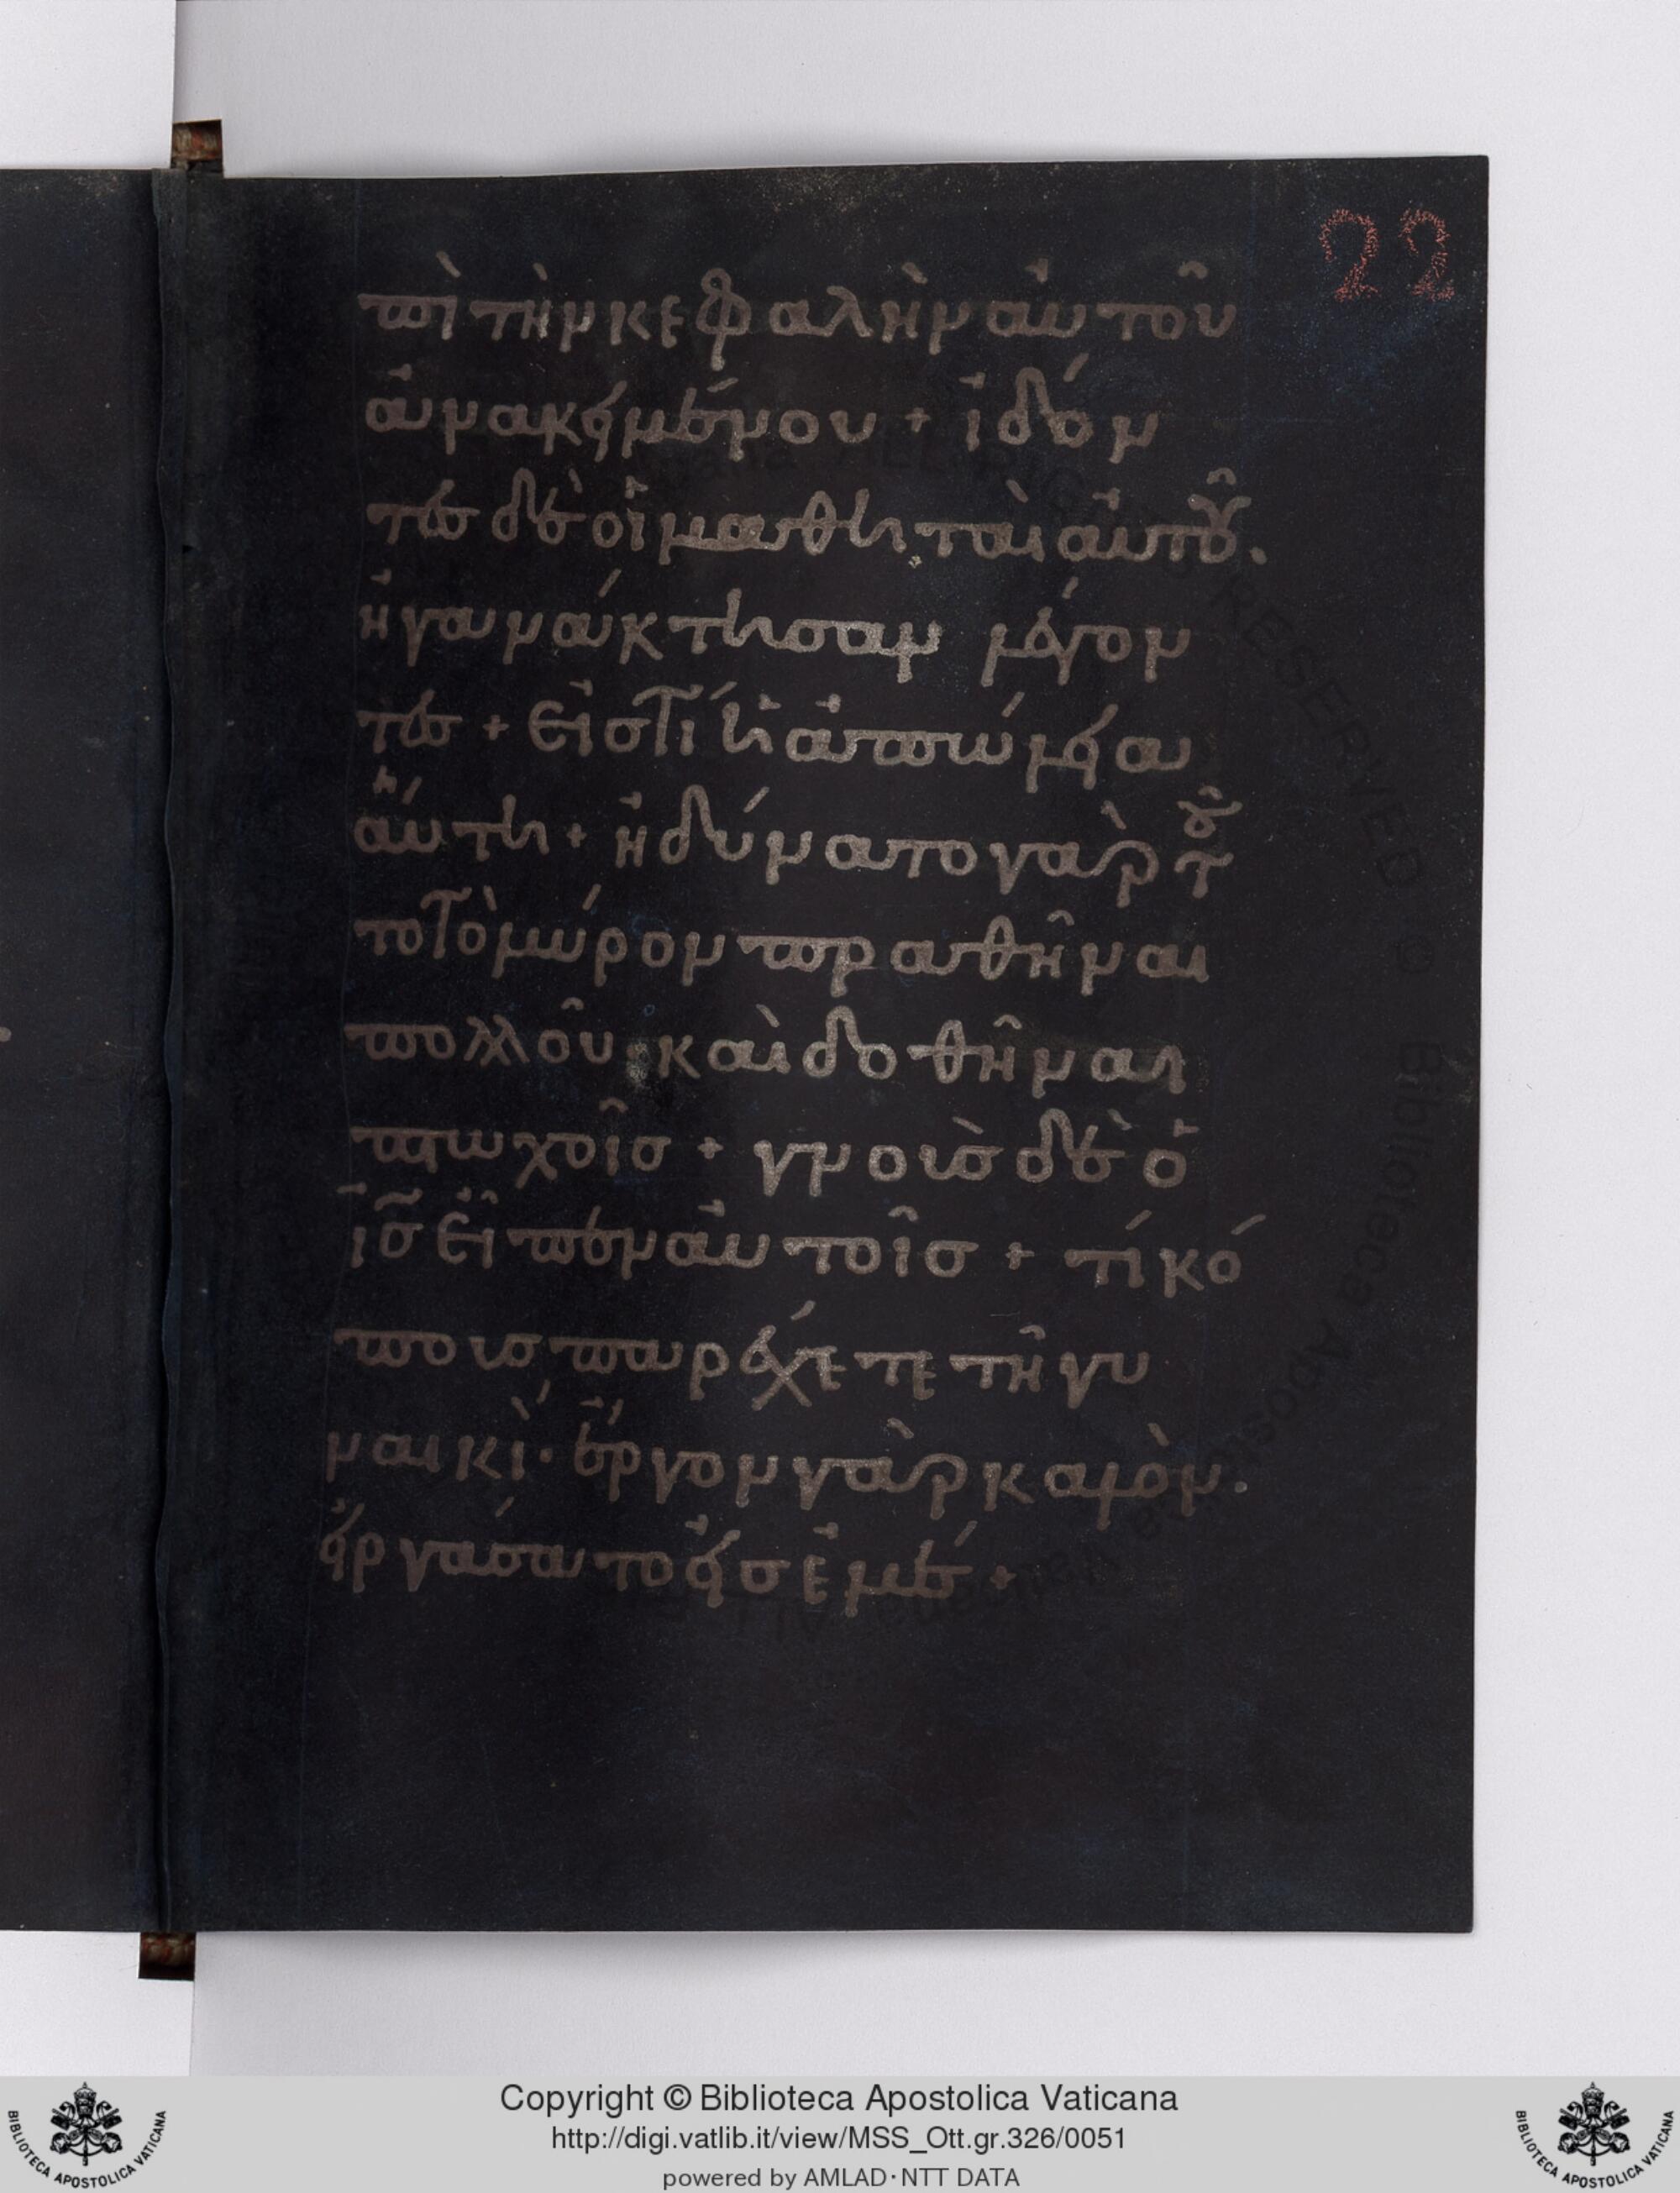 22
πὶ τὴν κεφαλὴν αὐτοῦ
ἀνακειμένου + ἰδόν
τες δὲ οἱ μαθηταὶ αὐτοῦ.
ἠγανάκτησαν λέγον
τες + εἰς τί ἡ ἀπώλεια
αὕτη + ἠδύνατο γὰρ τοῦ
το τὸ μύρον πραθῆναι
πολλοῦ. καὶ δοθῆναι
πτωχοῖς + γνοὺς δὲ ὁ
ι̅ς̅ εἶπεν αὐτοῖς + τί κό
πους παρέχετε τῇ γυ
ναικί· ἔργον γὰρ καλὸν.
εἰργάσατο εἰς ἐμέ +
Copyright © Biblioteca Apostolica Vaticana
http://digi.vatlib.it/view/MSS_Ott.gr.326/0051
powered by AMLAD·NTT DATA
BIBLIOTECA APOSTOLICA VATICANA
BIBLIOTECA APOSTOLICA VATICANA